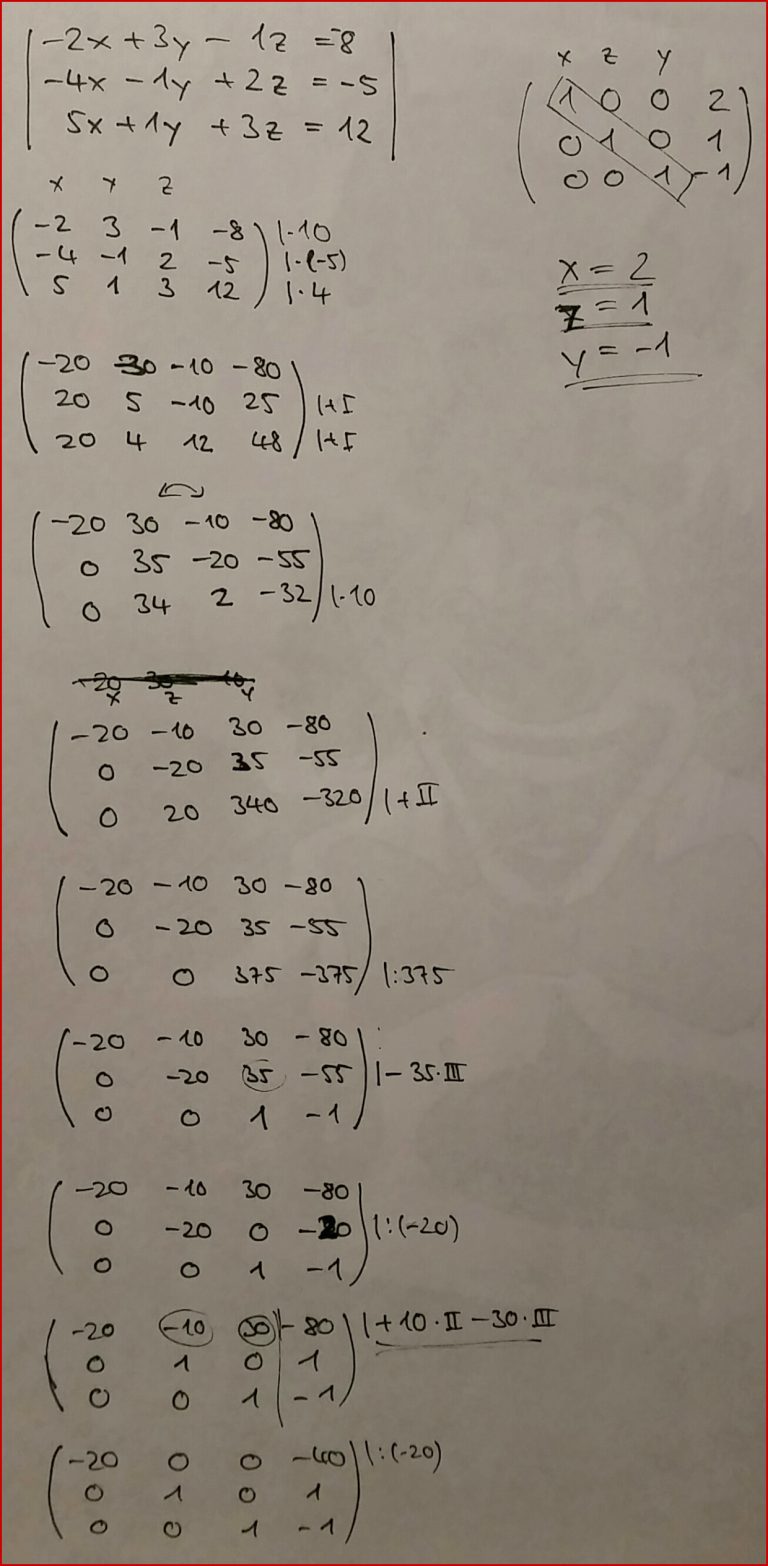 -2x + 3y - 1z = -8
-4x - 1y + 2z = -5
5x + 1y + 3z = 12
x y z
-2 3 -1 -8 | · 10
-4 -1 2 -5 | · (-5)
5 1 3 12 | · 4
-20 30 -10 -80
20 5 -10 25 | + I
20 4 12 48 | + I
-20 30 -10 -80
0 35 -20 -55
0 34 2 -32 | · 10
x z y
-20 -10 30 -80
0 -20 35 -55
0 20 340 -320 | + II
-20 -10 30 -80
0 -20 35 -55
0 0 375 -375 | : 375
-20 -10 30 -80
0 -20 35 -55 | - 35 · III
0 0 1 -1
-20 -10 30 -80
0 -20 0 -20 | : (-20)
0 0 1 -1
-20 -10 30 -80 | + 10 · II - 30 · III
0 1 0 1
0 0 1 -1
-20 0 0 -40 | : (-20)
0 1 0 1
0 0 1 -1
x z y
1 0 0 2
0 1 0 1
0 0 1 -1
x = 2
z = 1
y = -1